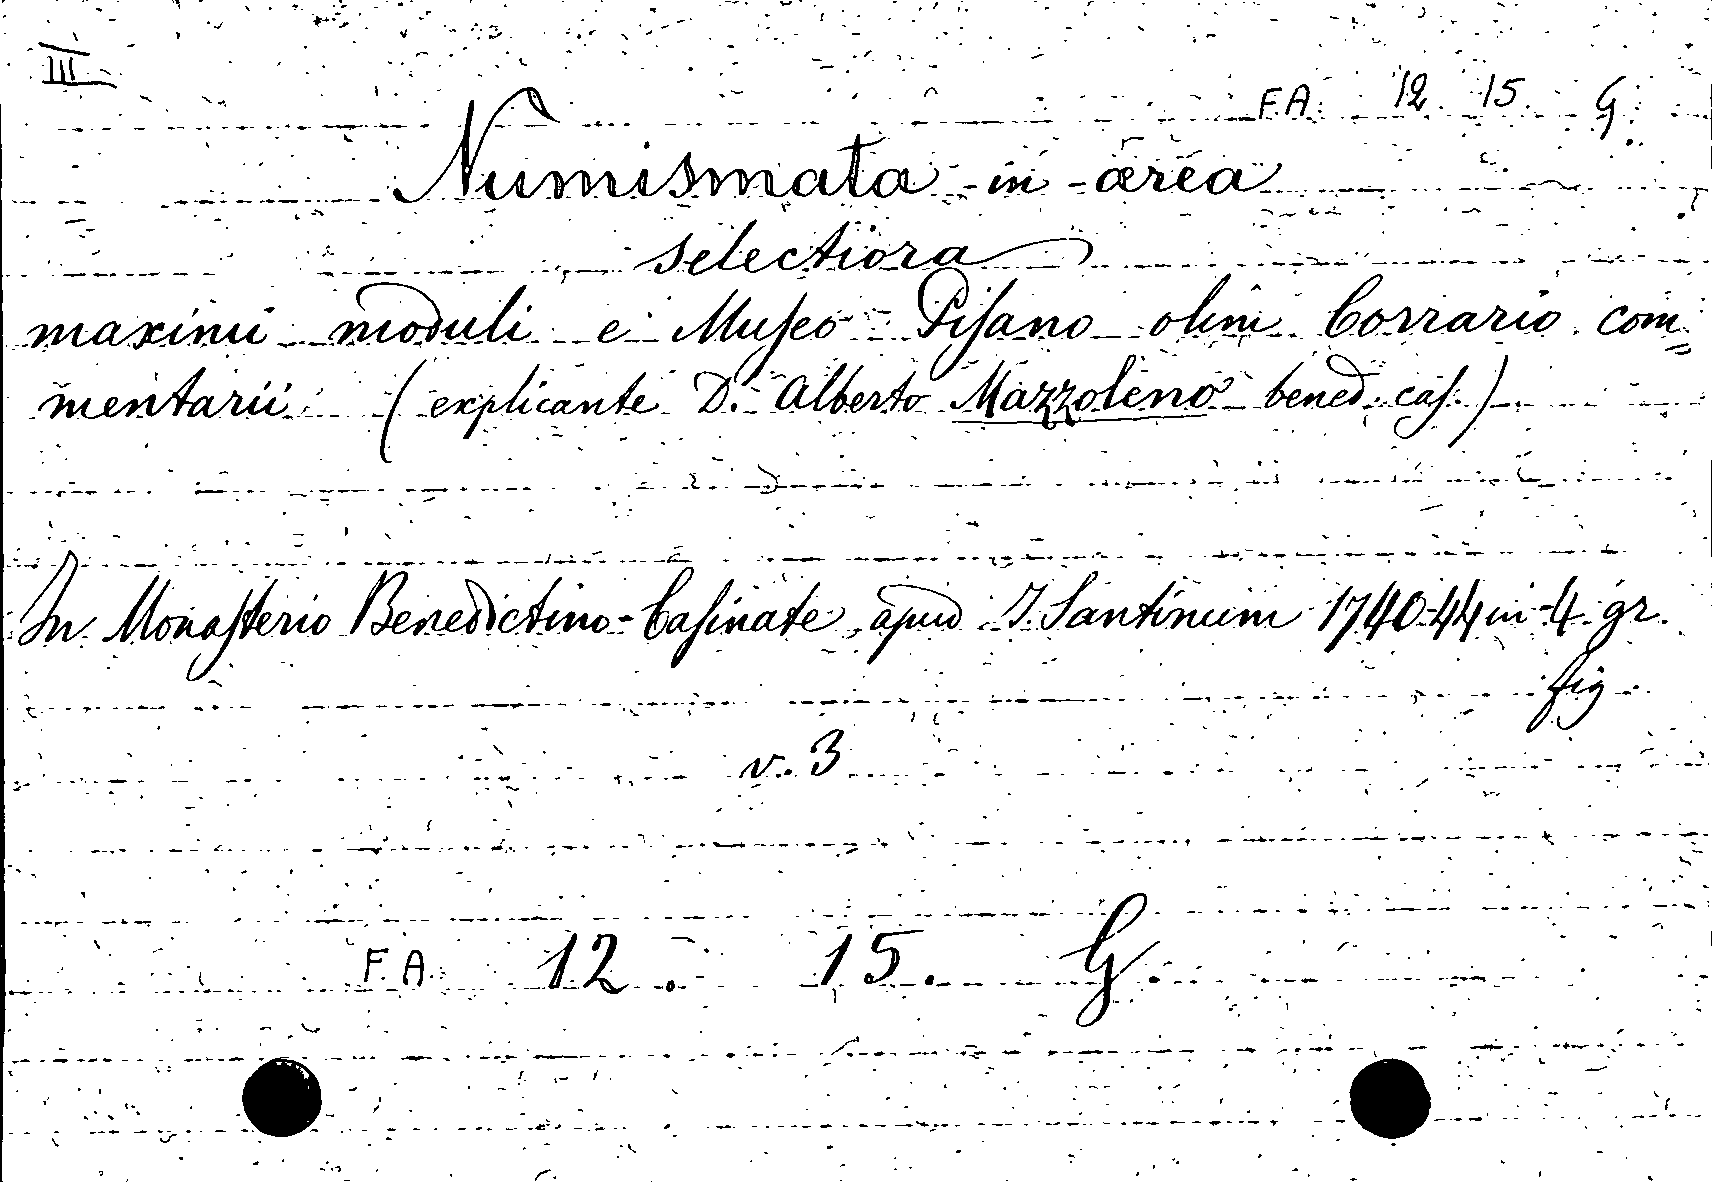 III
F.A. 12. 15. G.
Numismata in ærea
selectiora
maximi moduli e Museo Pisano olim Corrario com=
mentarii (explicante D. Alberto Mazzoleno bened. cas.)
In Monasterio Benedictino-Casinate apud J. Santinum 1740-44 in 4. gr.
fig.
v. 3
F.A. 12. 15. G.